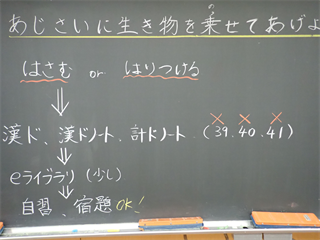 あじさいに生き物を乗せてあげよ
はさむ or はりつける
漢ド、漢ドノート、計ドノート (39、40、41)
eライブラリ (少し)
自習、宿題OK!